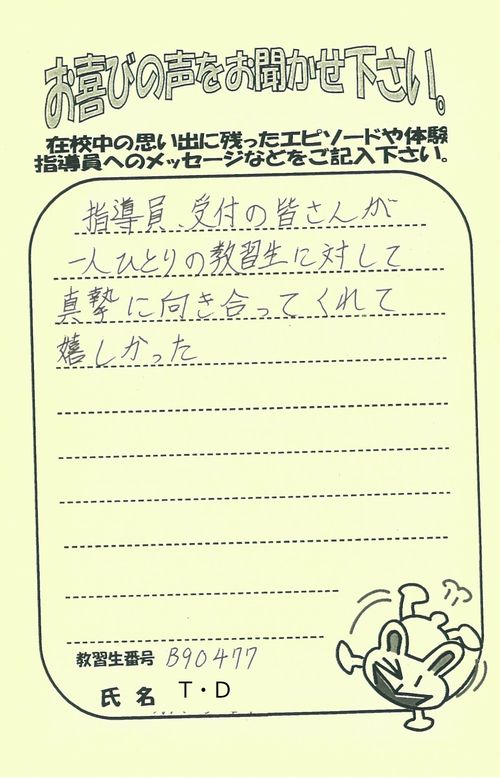 お喜びの声をお聞かせ下さい。
在校中の思い出に残ったエピソードや体験
指導員へのメッセージなどをご記入下さい。
指導員、受付の皆さんが
一人ひとりの教習生に対して
真摯に向き合ってくれて
嬉しかった
教習生番号 B90477
氏名 T・D